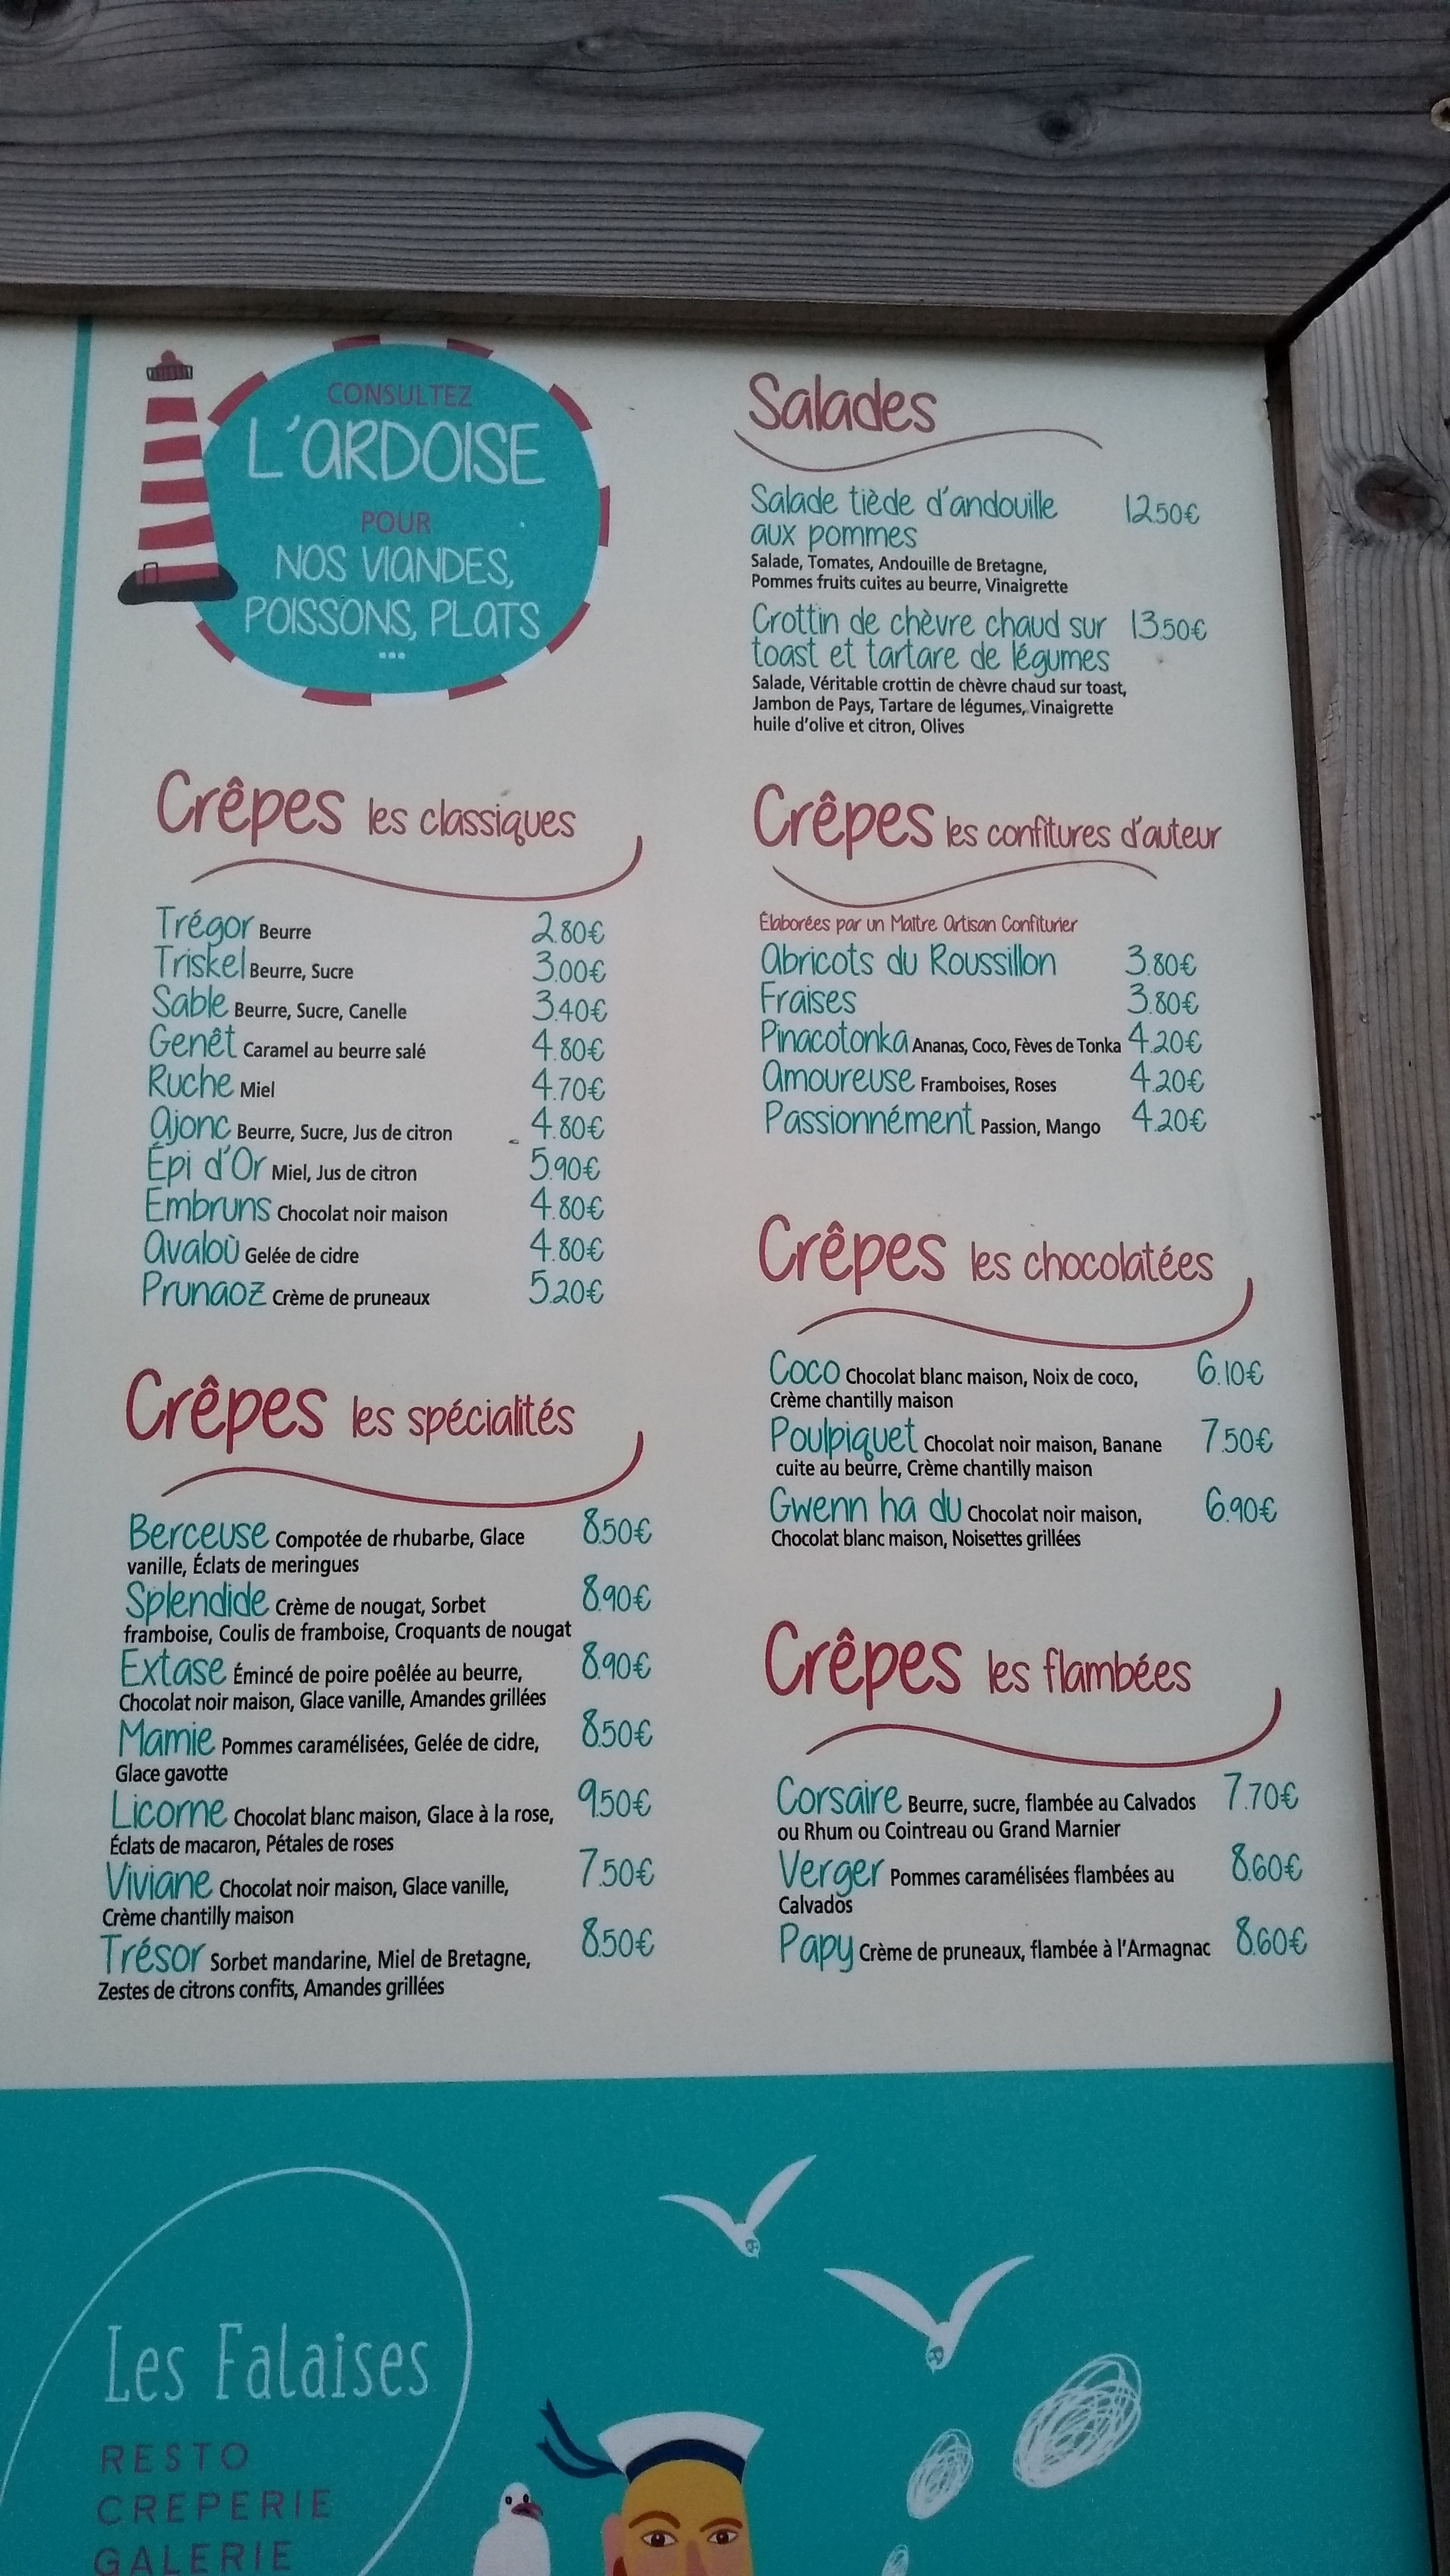 CONSULTEZ
L'ARDOISE
POUR
NOS VIANDES,
POISSONS, PLATS
...
Crêpes les classiques
Trégor Beurre 2.80€
Triskel Beurre, Sucre 3.00€
Sable Beurre, Sucre, Canelle 3.40€
Genêt Caramel au beurre salé 4.80€
Ruche Miel 4.70€
Ajonc Beurre, Sucre, Jus de citron 4.80€
Épi d'Or Miel, Jus de citron 5.90€
Embruns Chocolat noir maison 4.80€
Avaloù Gelée de cidre 4.80€
Prunaoz Crème de pruneaux 5.20€
Crêpes les spécialités
Berceuse Compotée de rhubarbe, Glace 8.50€
vanille, Éclats de meringues
Splendide Crème de nougat, Sorbet 8.90€
framboise, Coulis de framboise, Croquants de nougat
Extase Émincé de poire poêlée au beurre, 8.90€
Chocolat noir maison, Glace vanille, Amandes grillées
Mamie Pommes caramélisées, Gelée de cidre, 8.50€
Glace gavotte
Licorne Chocolat blanc maison, Glace à la rose, 9.50€
Éclats de macaron, Pétales de roses
Viviane Chocolat noir maison, Glace vanille, 7.50€
Crème chantilly maison
Trésor Sorbet mandarine, Miel de Bretagne, 8.50€
Zestes de citrons confits, Amandes grillées
Salades
Salade tiède d'andouille 12.50€
aux pommes
Salade, Tomates, Andouille de Bretagne,
Pommes fruits cuites au beurre, Vinaigrette
Crottin de chèvre chaud sur 13.50€
toast et tartare de légumes
Salade, Véritable crottin de chèvre chaud sur toast,
Jambon de Pays, Tartare de légumes, Vinaigrette
huile d'olive et citron, Olives
Crêpes les confitures d'auteur
Élaborées par un Maître Artisan Confiturier
Abricots du Roussillon 3.80€
Fraises 3.80€
Pinacotonka Ananas, Coco, Fèves de Tonka 4.20€
Amoureuse Framboises, Roses 4.20€
Passionnément Passion, Mango 4.20€
Crêpes les chocolatées
Coco Chocolat blanc maison, Noix de coco, 6.10€
Crème chantilly maison
Poulpiquet Chocolat noir maison, Banane 7.50€
cuite au beurre, Crème chantilly maison
Gwenn ha du Chocolat noir maison, 6.90€
Chocolat blanc maison, Noisettes grillées
Crêpes les flambées
Corsaire Beurre, sucre, flambée au Calvados 7.70€
ou Rhum ou Cointreau ou Grand Marnier
Verger Pommes caramélisées flambées au 8.60€
Calvados
Papy Crème de pruneaux, flambée à l'Armagnac 8.60€
Les Falaises
RESTO
CREPERIE
GALERIE